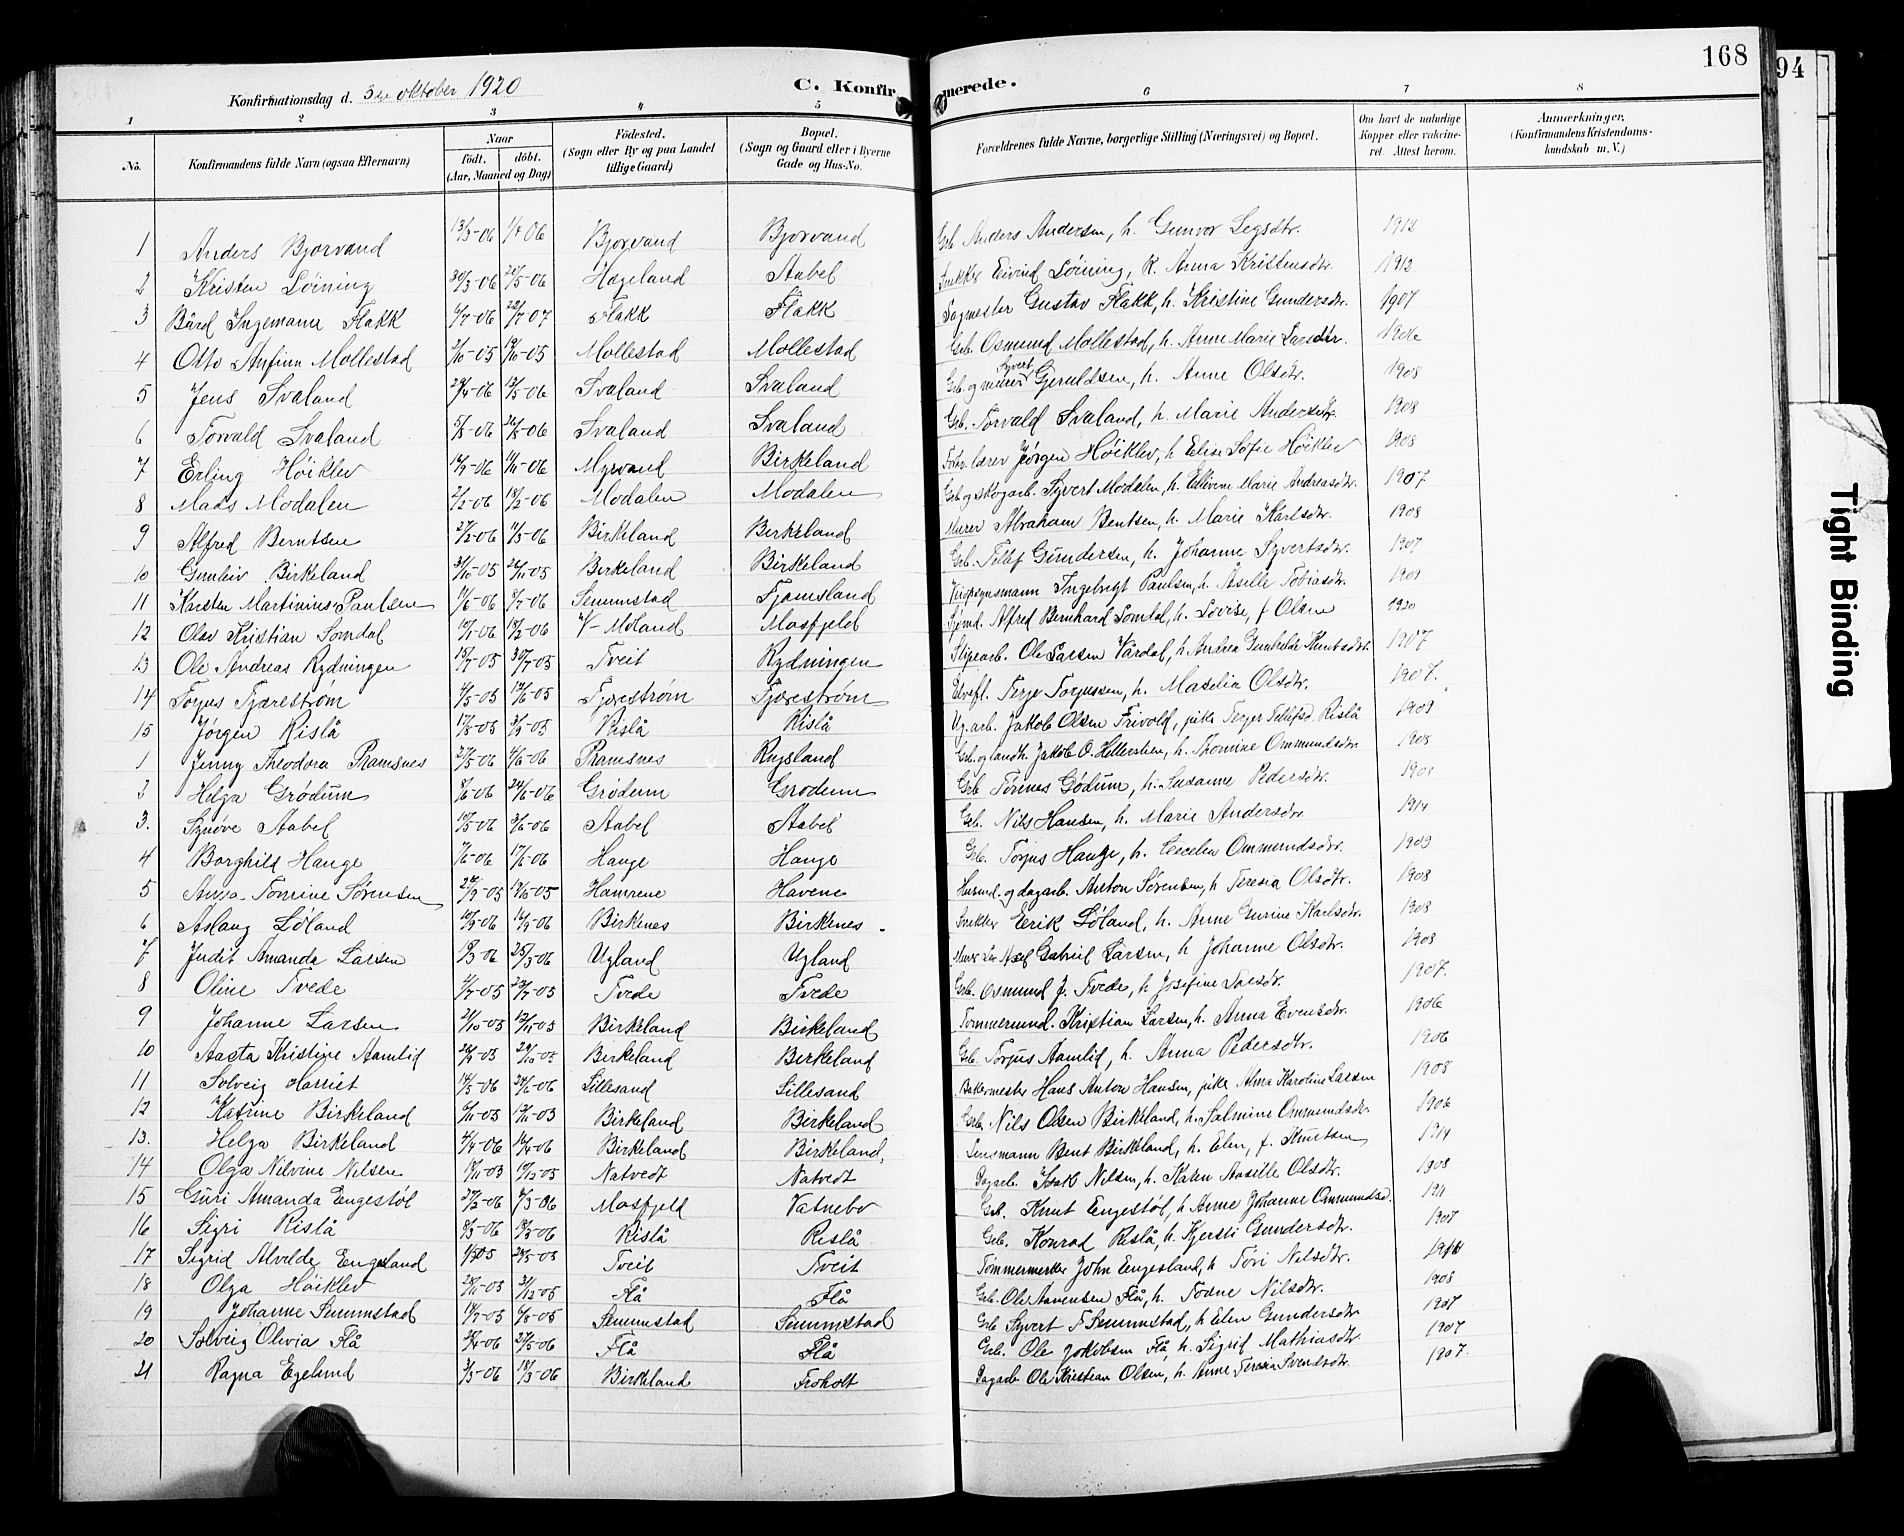 168
94
Konfirmationsdag d. 3dje oktober 1920
C. Konfirmerede.
1 2 3 4 5 6 7 8
No.
Konfirmandens fulde Navn (ogsaa Efternavn)
Naar
født. døbt.
(Aar, Maaned og Dag)
Fødested.
(Sogn eller By og paa Landet
tillige Gaard)
Bopæl.
(Sogn og Gaard eller i Byerne
Gade og Hus-No.
Forældrenes fulde Navne, borgerlige Stilling (Næringsvei) og Bopæl.
Om havt de naturlige
Kopper eller vaccine-
ret. Attest herom.
Anmerkninger,
(Konfirmandens Kristendoms-
kundskab m. V.)
1 Anders Bjorvand 13/3-06 1/4 06 Bjorvand Bjorvand Grb. Anders Andersen, h. Gunvor Legsdtr. 1912
2 Kristen Løining 30/3-06 20/5-06 Hageland Aabel Snekker Eivind Løining, K. Anna Kristensdtr. 1912
3 Bård Ingemann Flakk 6/7-06 22/7 07 Flakk Flakk Sagmester Gustav Flakk, h. Kristine Gundersdtr. 1907
4 Otto Anfinn Mollestad 2/10-05 19/10-05 Mollestad Mollestad Grb. Osmund Mollestad, h. Anne Marie Larsdtr. 1906
5 Jens Svaland 29/4-06 13/5-06 Svaland Svaland Grb. og murer Syvert Geruldsen, h. Anne Olsdtr. 1908
6 Torvald Svaland 5/8-06 26/8-06 Svaland Svaland Grb. Torvald Svaland, h. Marie Andersdtr. 1908
7 Erling Høiklev 14/9-06 11/11-06 Myrvand Birkeland lærer Jørgen Høiklev, h. Elise Sofie Høiklev 1908
8 Mads Modalen 2/2-06 18/2-06 Modalen Modalen Grb og skogarb. Syvert Modalen, h. Ellevine Marie Andreasdtr. 1907
9 Alfred Berntsen 27/2-06 11/3-06 Birkeland Birkeland Murer Abraham Bentsen, h. Marie Karlsdtr. 1908
10 Gunleiv Birkeland 31/10-05 26/11-05 Birkeland Birkeland Grb. Tellef Gundersen, h. Johanne Syvertsdtr. 1907
11 Karsten Martinius Paulsen 11/6-06 8/7-06 Senumstad Fjomsland Ingebrigt Paulsen, h. Aselle Tobiasdtr. 1909
12 Olav Kristian Somdal 10/1-06 18/2-06 V-Moland Mosfjeld Sjømd. Alfred Bernhard Somdal, h. Lovise, f. Olsen 1920
13 Ole Andreas Rydningen 15/7-05 30/7-05 Tveit Rydningen Slipearb. Ole Larsen Vårdal, h. Andrea Gunhilde Knutsdtr. 1907
14 Torjus Tjærestrøm 4/5-05 12/6-05 Tjærestrøm Tjærestrøm Elvefl. Terje Torjussen, h. Maselia Olsdtr. 1907.
15 Jørgen Rislå 17/8-05 3/9-05 Rislå Rislå Ug.arb. Jakob Olsen Frivold, pike Terjer Tellefsd. Rislå 1909
1 Jenny Theodora Ramsnes 27/5-06 4/6-06 Ramsnes Rugsland Grb. og landh. Jakob O. Hellerslien, h. Thomine Ommundsdtr. 1908
2 Helga Grødum 8/6-06 24/6-06 Grødum Grodum Grb. Tønnes Gødum, h. Susanne Pedersdtr. 1908
3. Synøve Aabel 10/5-06 3/6-06 Aabel Aabel Grb. Nils Hansen, h. Marie Andersdtr. 1914
4 Borghild Hauge 7/6-06 17/6-06 Hauge Hauge Grb. Torjus Hauge, h. Cecelia Ommundsdtr. 1909
5 Anna Tomine Sørensen 24/9-05 15/10-05 Hamrene Havene Husmd. og dagarb. Anton Sørensen, h. Teresia Olsdtr. 1908
6 Aslaug Løland 10/9-06 16/9-06 Birkenes Birkenes Snekker Eerik Løland, h. Anne Gurine Karlsdtr. 1908
7 Judit Amanda Larsen 9/3-06 25/3-06 Ugland Ugland Aksel Gabriel Larsen, h Johanne Olsdtr. 1908
8 Oline Tvede 4/7-05 23/7-05 Tvede Tvede Grb. Osmund J. Tvede, h Josefine Larsdtr. 1907.
9 Johanne Larsen 21/10-05 12/11-05 Birkeland Birkeland Tømmermd. Kristian Larsen, h. Anna Evensdtr. 1906
10 Aasta Kristine Aamlid 20/9-05 29/10-05 Birkeland Birkeland Grb. Torjus Aamlid, h. Anna Pedersdtr. 1906
11 Solveig Harriet 14/5-06 24/6-06 Lillesand Lillesand Bakermester Hans Anton Hansen, pike Alma Karoline Larsen 1908
12 Katrine Birkeland 6/11-05 19/11-05 Birkeland Birkeland Grb. Nils Olsen Birkeland, h. Salmine Ommundsdtr. 1906
13. Helga Birkeland 4/4-06 16/4-06 Birkeland Birkeland, Lensmann Bent Birkeland, h. Elen, f. Knutsen 1914
14 Olga Nilvine Nilsen 19/11-05 10/12-05 Natvedt Natvedt Dagarb. Isak Nilsen, h. Karen Aaselle Olsdtr. 1908
15 Guri Amanda Engestøl 27/2-06 4/3-06 Mosfjeld Vatnebo Grb. Knut Engestøl, h Anne Johanne Ommundsd. 1911
16 Sigri Rislå 8/3-06 18/3-06 Rislå Rislå Grb. Konrad Rislå, h. Kjersti Gundersdtr. 1907
17 Sigrid Alvilde Engesland 9/5 05 28/5-05 Tveit Tveit Tømmermerker John Engesland, h Tori Nilsdtr. 1911
18 Olga Høiklev 28/11-05 31/12-05 Flå Flå Grb. Ole Aanensen Flå, h. Tosne Nilsdtr. 1908
19 Johanne Senumstad 19/7-05 6/8-05 Senumstad Senumstad Grb Syvert T Senumstad, h Elen Gundersdtr 1907
20 Solveig Olivia Flå 24/4-06 27/5-06 Flå Flå Grb. Ole Jakobsen Flå, h. Sigrid Mathiasdtr. 1907
21 Ragna Egelund 3/3-06 18/3-06 Birkeland Froholt Dagarb Ole Kristian Olsen, h. Anne Teresia Svendsdtr. 1907.
Tight Binding